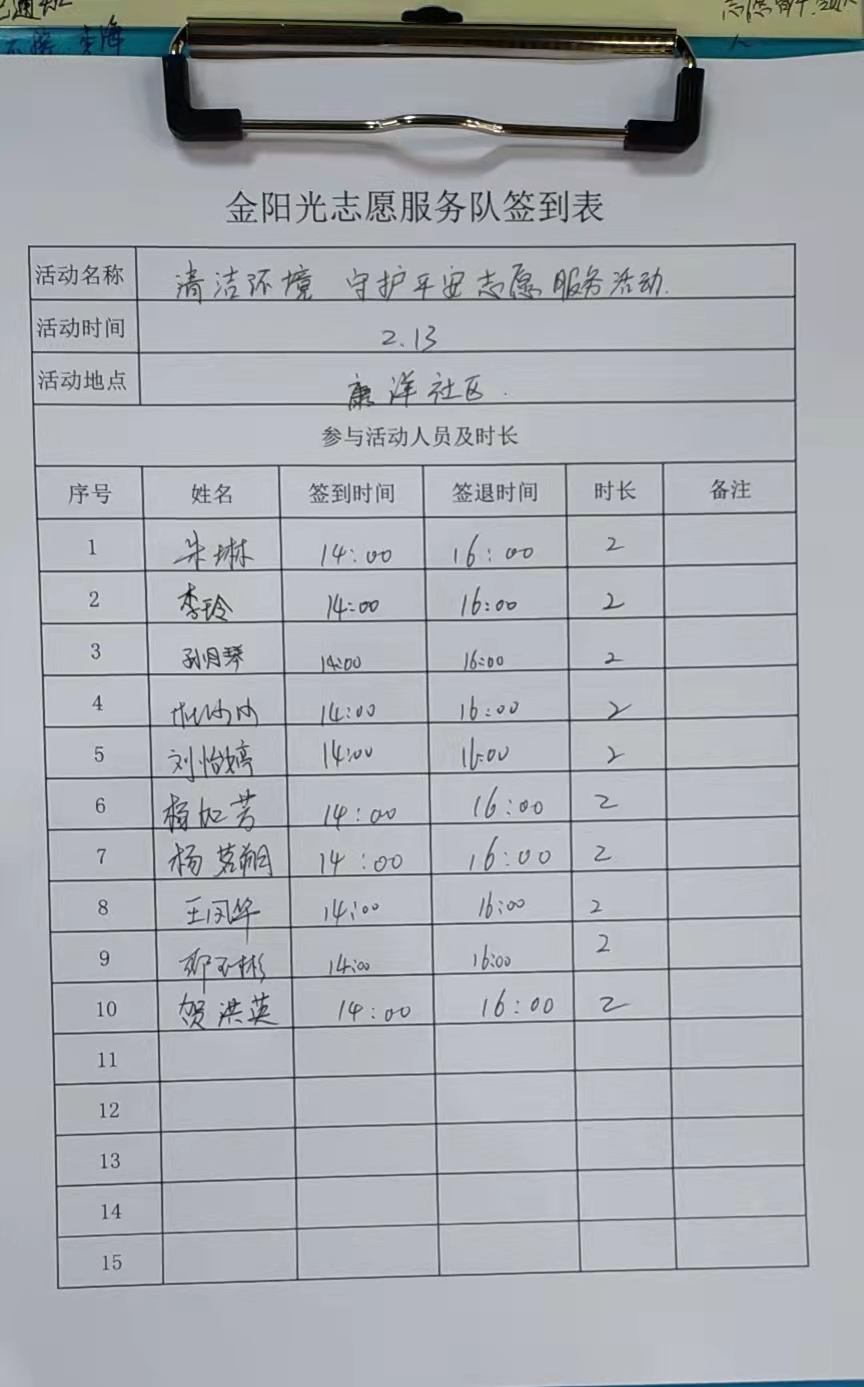 金阳光志愿服务队签到表
活动名称 清洁环境 守护平安志愿服务活动.
活动时间 2.13
活动地点 康洋社区.
参与活动人员及时长
序号 姓名 签到时间 签退时间 时长 备注
1 朱琳 14:00 16:00 2
2 李玲 14:00 16:00 2
3 孙月琴 14:00 16:00 2
4 14:00 16:00 2
5 刘怡婷 14:00 16:00 2
6 杨如芳 14:00 16:00 2
7 杨茗朝 14:00 16:00 2
8 王凤华 14:00 16:00 2
9 14:00 16:00 2
10 贺洪英 14:00 16:00 2
11
12
13
14
15